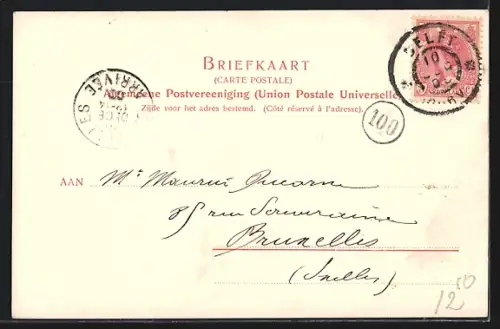 BRIEFKAART
(CARTE POSTALE)
Algemeene Postvereeniging (Union Postale Universelle)
Zijde voor het adres bestemd. (Côté réservé à l'adresse).
DELFT
10
ARRIVÉE
100
AAN Mr Maurice
85 rue Souveraine
Bruxelles
(Ixelles)
50
12